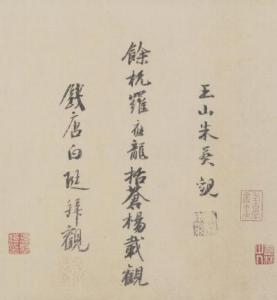 玉山朱英觀
餘杭羅龍括蒼楊載觀
錢唐白珽拜觀